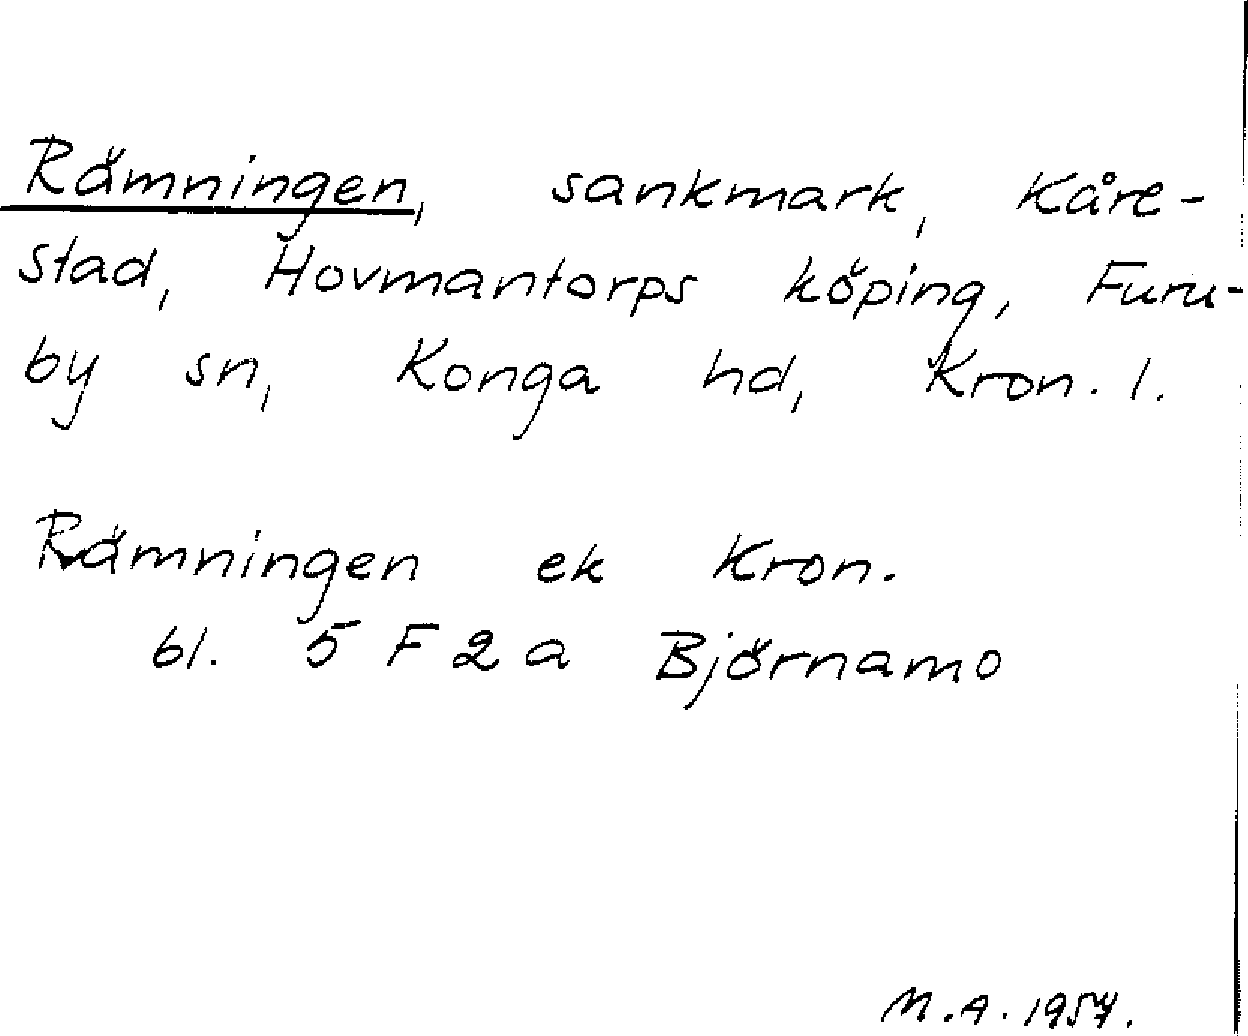 Rämningen, sankmark, Kåre-
stad, Hovmantorps köping, Furu-
by sn, Konga hd, Kron. l.
Rämningen ek Kron.
bl. 5 F 2 a Björnamo
M.A. 1957.